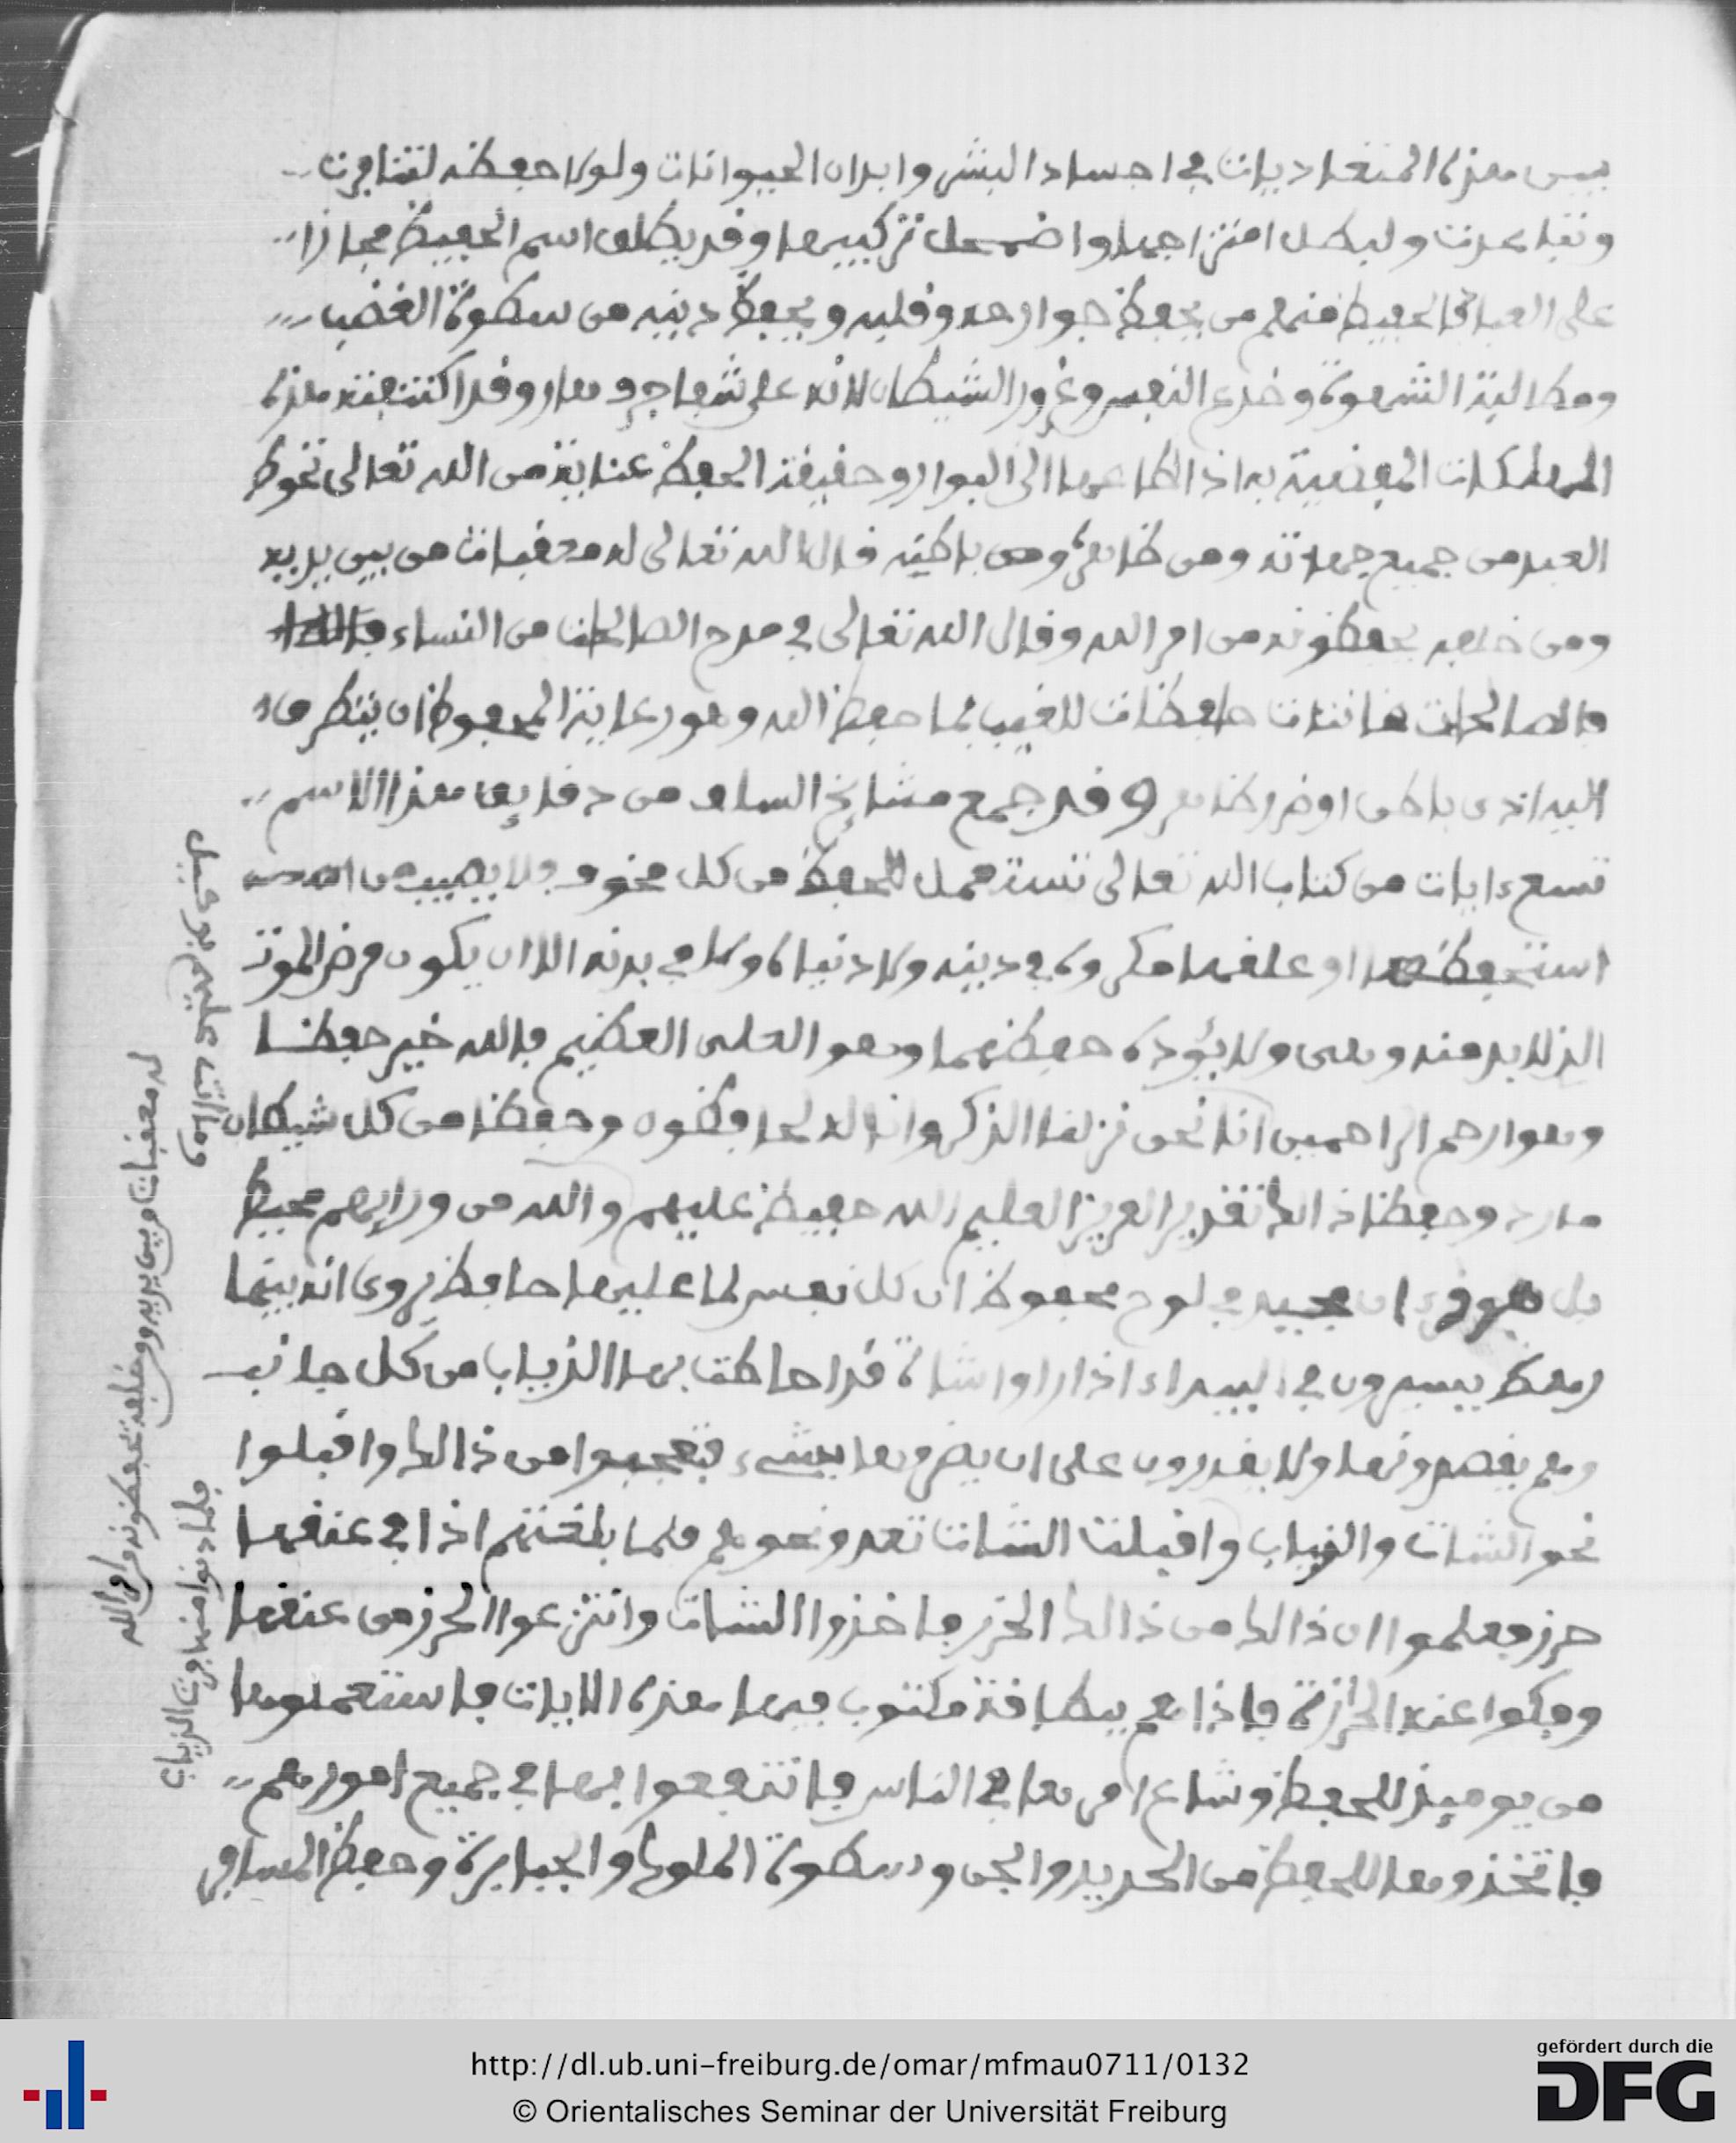 بين هذه المتعاديات في اجساد البشر وابدان الحيوانات ولولا حفظه لتنافرت
وتباعدت ولبطل امتزاجها واضمحل تركيبها وقد يطلق اسم الحفيظ مجازا
على العباد فالحفيظ منهم من يحفظ جوارحه وقلبه ويحفظ دينه من سطوة الغضب
ومطالبة الشهوة وخدع النفس وغرور الشيطان لانه على شفا جرف هار وقد اكتنفته هذه
المهلكات المفضية به اذا اطاعها الى البوار وحقيقة الحفظ عناية من الله تعالى تحوط
العبد من جميع جهاته ومن ظاهره ومن باطنه قال الله تعالى له معقبات من بين يديه
ومن خلفه يحفظونه من امر الله وقال الله تعالى في مدح الصالحات من النساء
فالصالحات قانتات حافظات للغيب بما حفظ الله وهو رعاية المحفوظ ان يتطرق
اليه اذى باطن او ضر ظاهر وقد جمع مشايخ السلف من دقايق هذا الاسم
تسع ءايات من كتاب الله تعالى تستعمل للحفظ من كل مخوف ولا يصيب من
استحفظها او علقها مكروه في دينه ولا دنياه ولا في بدنه الا ان يكون مرض الموت
الذ لابد منه وهى ولا يؤده حفظهما وهو العلى العظيم فالله خير حفظا
وهو ارحم الراحمين انا نحن نزلنا الذكر وانا له لحافظون وحفظا من كل شيطان
مارد وحفظا ذالك تقدير العزيز العليم الله حفيظ عليهم والله من ورايهم محيط
بل هو قرءان مجيد في لوح محفوظ ان كل نفس لما عليها حافظ يروى انه بينما
رهط يسيرون في البيداء اذا راوا شاة قد احاطت بها الذياب من كل جانب
وهم يقصدونها ولا يقدرون على ان يضروها بشىء فتعجبوا من ذالك واقبلوا
نحو الشات والذياب واقبلت الشات تعدو نحوهم فلما بلغتهم اذا في عنقها
حرز فعلموا ان ذالك من ذالك الحرز فاخذوا الشات وانتزعوا الحرز من عنقها
وفكوا عنه الخرازة فاذا هي بطاقة مكتوب فيها هذه الايات فاستعملوها
من يوميذ للحفظ وشاع امرها في الناس فانتفعوا بها في جميع امورهم
فاتخذوها للحفظ من الحديد والجن وسطوة الملوك والجبابرة وحفظ المسافر
وما انت عليهم بوكيل
له معقبات من بين يديه ومن خلفه يحفظونه من امر الله
فلما دنوا منها فرت الذياب
http://dl.ub.uni-freiburg.de/omar/mfmau0711/0132
© Orientalisches Seminar der Universität Freiburg
gefördert durch die
DFG